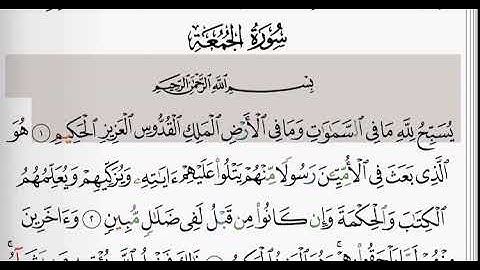 سُورَةُ الجُمُعَةِ
بِسْمِ اللَّهِ الرَّحْمَٰنِ الرَّحِيمِ
يُسَبِّحُ لِلَّهِ مَا فِي السَّمَٰوَٰتِ وَمَا فِي الْأَرْضِ الْمَلِكِ الْقُدُّوسِ الْعَزِيزِ الْحَكِيمِ ١ هُوَ
الَّذِي بَعَثَ فِي الْأُمِّيِّـۧنَ رَسُولًا مِّنْهُمْ يَتْلُوا عَلَيْهِمْ ءَايَٰتِهِۦ وَيُزَكِّيهِمْ وَيُعَلِّمُهُمُ
الْكِتَٰبَ وَالْحِكْمَةَ وَإِن كَانُوا مِن قَبْلُ لَفِي ضَلَٰلٍ مُّبِينٍ ٢ وَءَاخَرِينَ